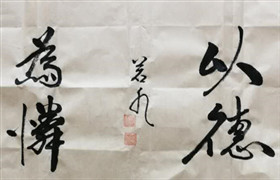 以德
為憐
若